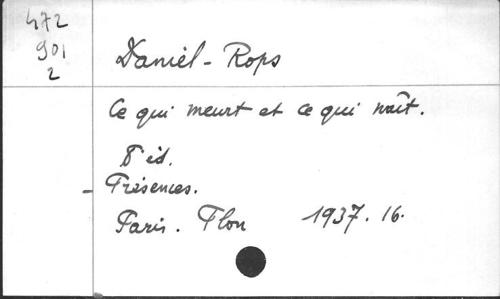 472
901
2
Daniel-Rops
Ce qui meurt et ce qui naît.
8e éd.
- Présences.
Paris. Plon 1937. 16.